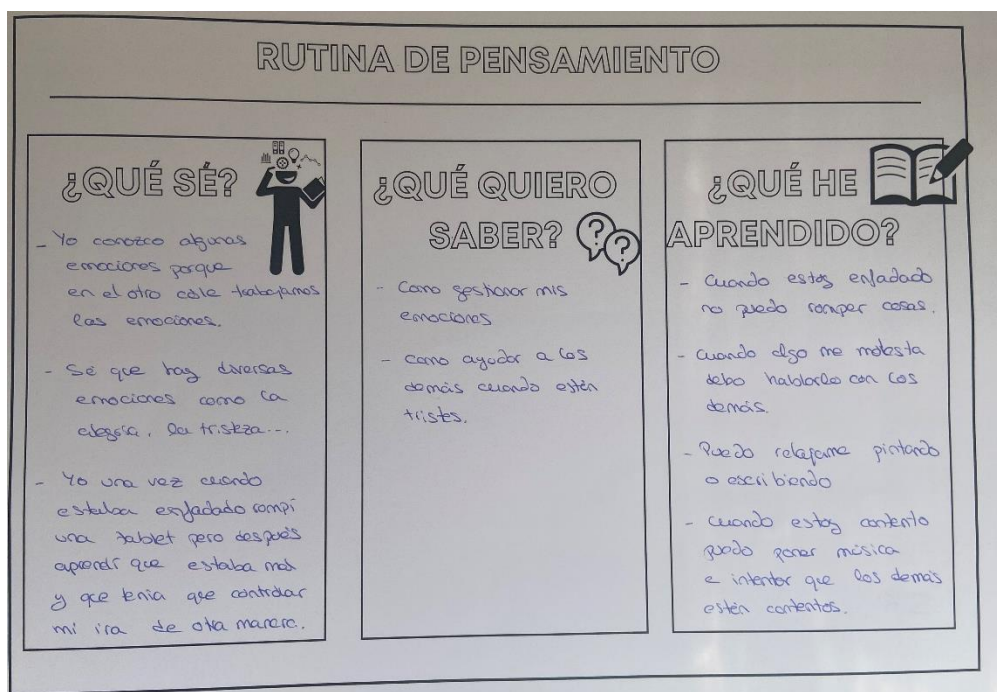 RUTINA DE PENSAMIENTO
¿QUÉ SÉ?
- Yo conozco algunas
emociones porque
en el otro cole trabajamos
las emociones.
- Sé que hay diversas
emociones como la
alegría, la tristeza...
- Yo una vez cuando
estaba enfadado rompí
una tablet pero después
aprendí que estaba mal
y que tenía que controlar
mi ira de otra manera.
¿QUÉ QUIERO
SABER?
- Como gestionar mis
emociones
- como ayudar a los
demás cuando estén
tristes.
¿QUÉ HE
APRENDIDO?
- Cuando estoy enfadado
no puedo romper cosas.
- Cuando algo me molesta
debo hablarlo con los
demás.
- Puedo relajarme pintando
o escribiendo
- cuando estoy contento
puedo poner música
e intentar que los demás
estén contentos.